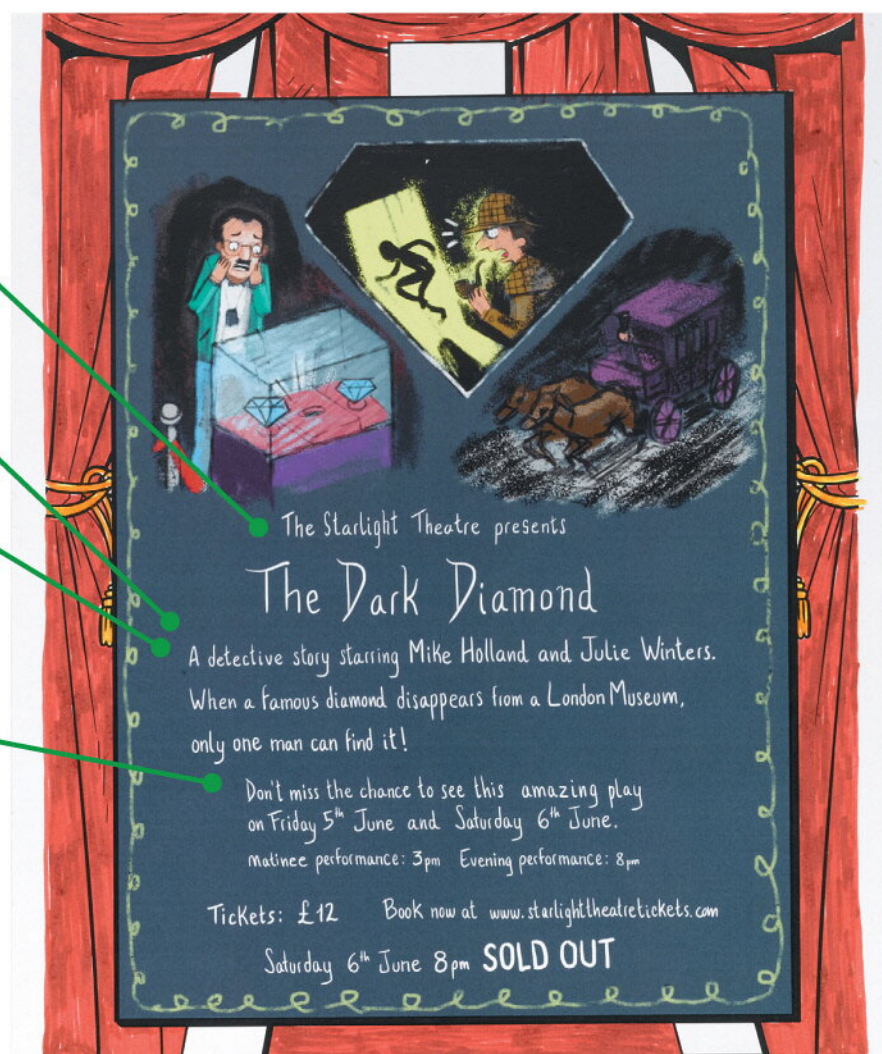 The Starlight Theatre presents
The Dark Diamond
A detective story starring Mike Holland and Julie Winters.
When a famous diamond disappears from a London Museum,
only one man can find it!
Don't miss the chance to see this amazing play
on Friday 5th June and Saturday 6th June.
Matinee performance: 3pm Evening performance: 8pm
Tickets: £12 Book now at www.starlighttheatretickets.com
Saturday 6th June 8pm SOLD OUT